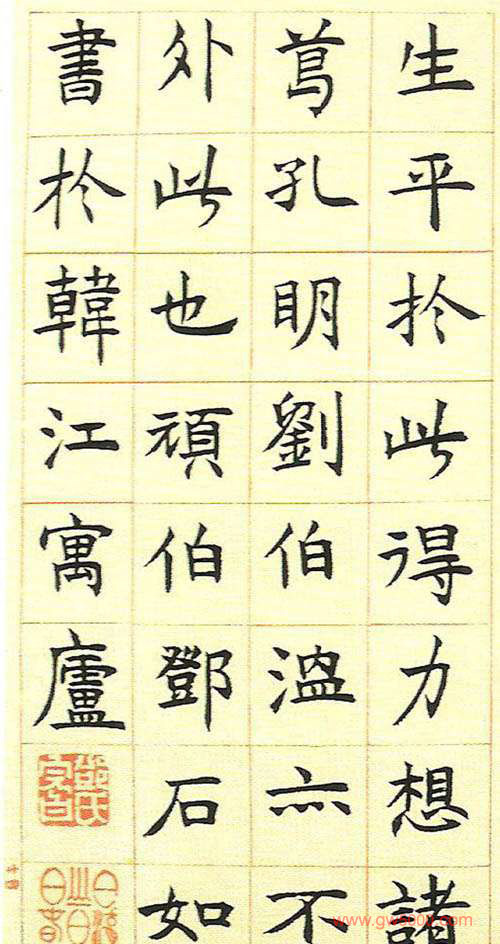 生平扵此得力想諸
葛孔明劉伯溫亦不
外此也頑伯鄧石如
書扵韓江寓廬
www.gw8000.com